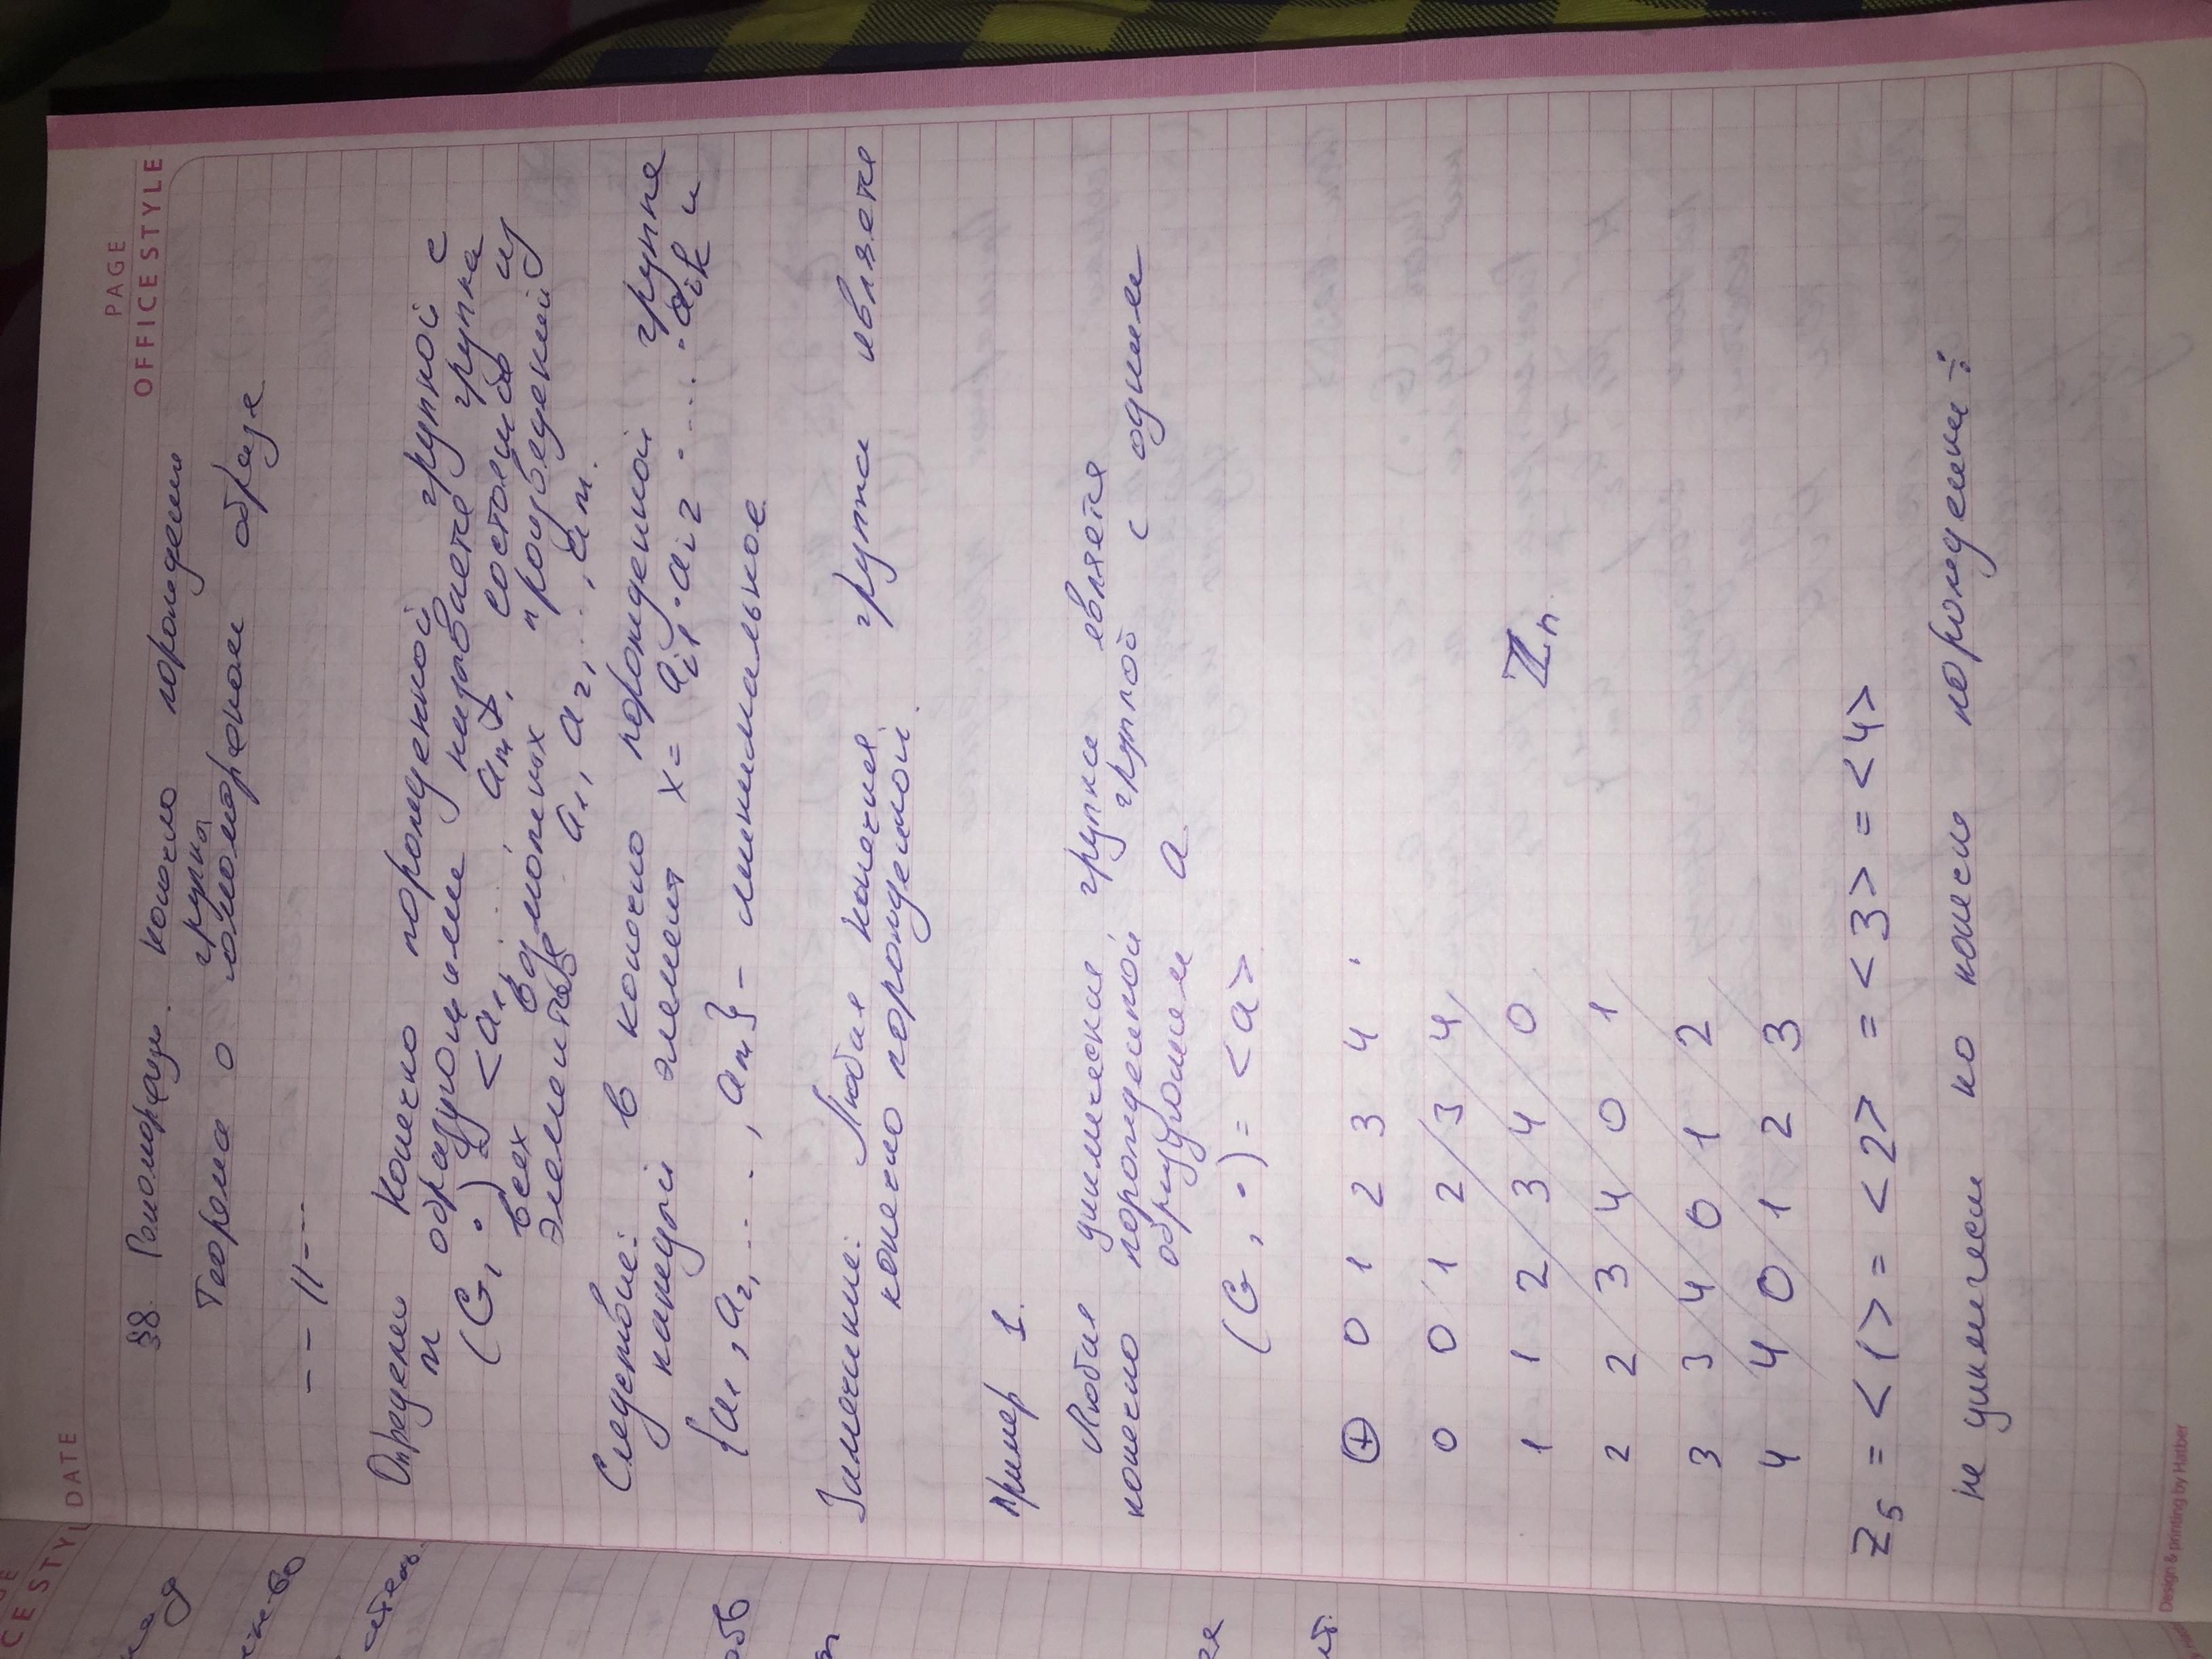 DATE
PAGE
OFFICE STYLE
§8. Гомоморфизм. Конечно порождение
группа
Теорема о гомоморфном образе
-- // ---
Определен Конечно порожденной группой с
m образующими называется группа
(G, ·) = <a₁, ..., aₘ>, состоящая из
всех возможных произведений
элементов a₁, a₂, ..., aₘ.
Следствие: в конечно порожденной группе
каждый элемент x = aᵢ₁ · aᵢ₂ · .... · aᵢₖ и
{a₁, a₂, ...., aₘ} – минимальное
Замечание: Любая конечная группа является
конечно порожденной.
Пример 1.
Любая циклическая группа является
конечно порожденной группой с одним
образующим a.
(G, ·) = <a>
⊕ 0 1 2 3 4
0 0 1 2 3 4
1 1 2 3 4 0
ℤₙ
2 2 3 4 0 1
3 3 4 0 1 2
4 4 0 1 2 3
Z₅ = <1> = <2> = <3> = <4>
не циклическ но конечн порожденн ÷
Design & printing by Hatber